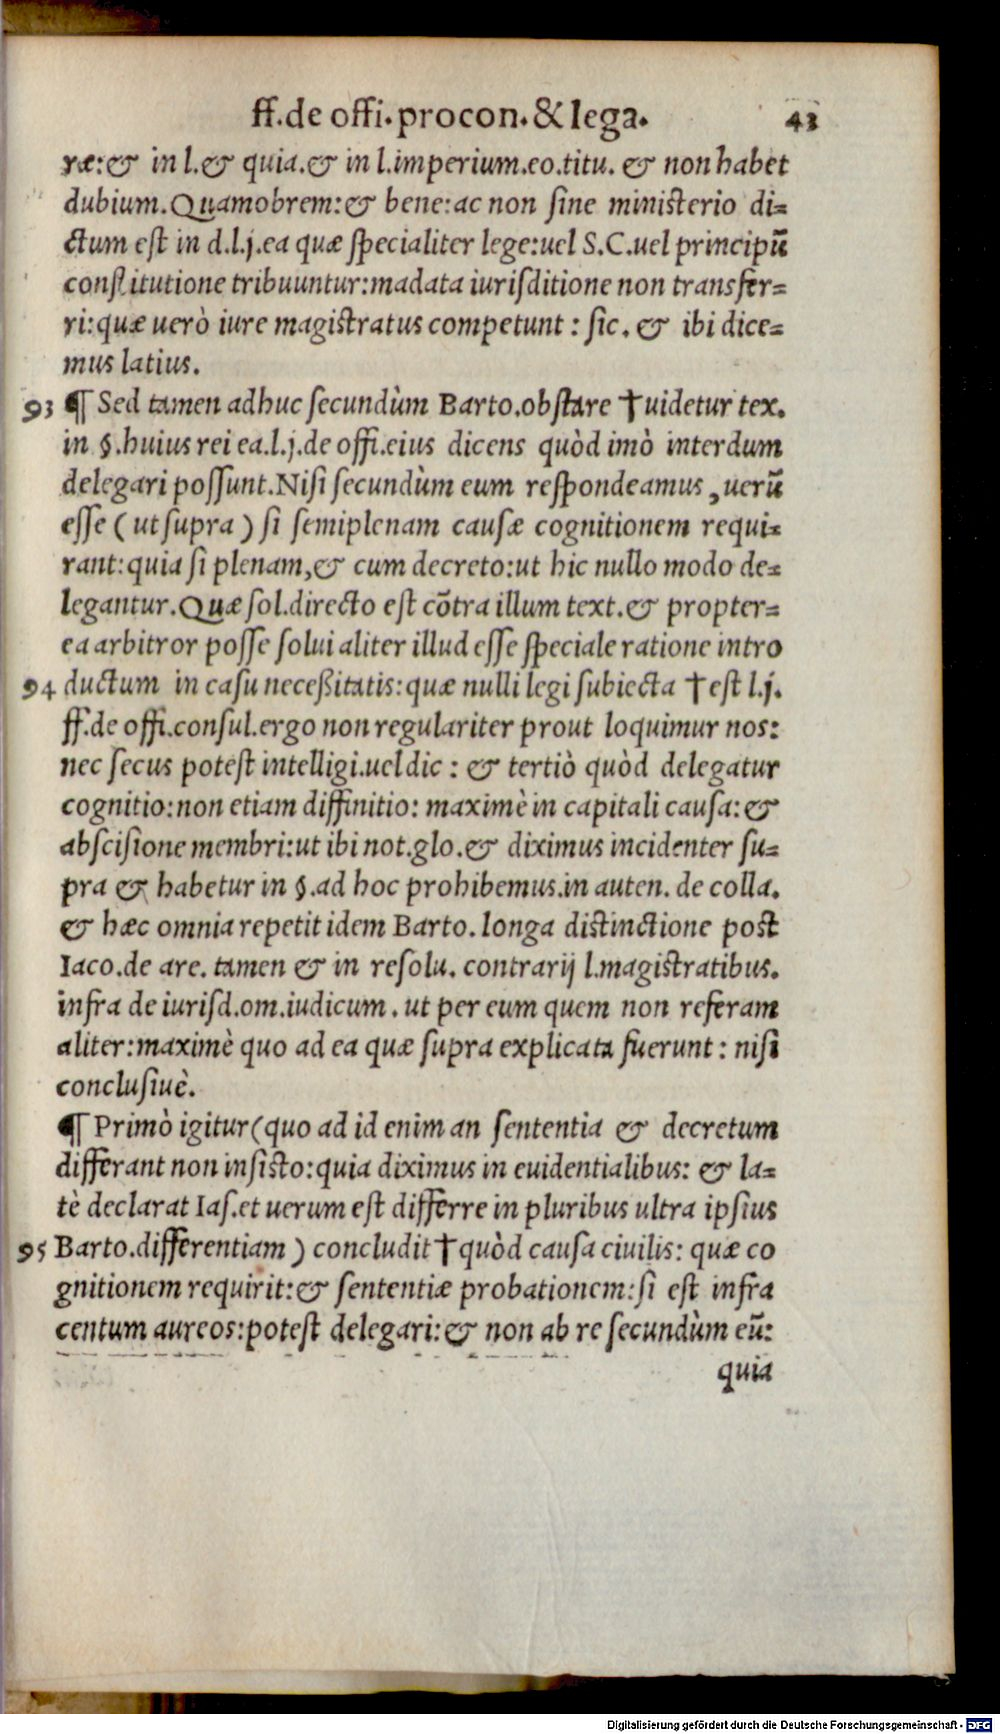 ff.de offi.procon.& lega. 43
ræ:& in l.& quia.& in l.imperium.eo.titu. & non habet
dubium.Quamobrem:& bene:ac non ſine miniſterio di=
ctum eſt in d.l.j.ea quæ ſpecialiter lege:uel S.C.uel principũ
conſtitutione tribuuntur:madata iuriſditione non transfer=
ri:quæ uerò iure magiſtratus competunt : ſic. & ibi dice=
mus latius.
93 ¶ Sed tamen adhuc ſecundùm Barto.obſtare †uidetur tex.
in §.huius rei ea.l.j.de offi.eius dicens quòd imò interdum
delegari poſſunt.Niſi ſecundùm eum reſpondeamus, uerũ
eſſe ( ut ſupra ) ſi ſemiplenam cauſæ cognitionem requi=
rant:quia ſi plenam,& cum decreto:ut hic nullo modo de=
legantur.Quæ ſol.directo eſt cõtra illum text.& propter=
ea arbitror poſſe ſolui aliter illud eſſe ſpeciale ratione intro
94 ductum in caſu neceßitatis:quæ nulli legi ſubiecta †eſt l.j.
ff.de offi.conſul.ergo non regulariter prout loquimur nos:
nec ſecus poteſt intelligi.uel dic : & tertiò quòd delegatur
cognitio:non etiam diffinitio: maximè in capitali cauſa:&
abſciſione membri:ut ibi not.glo.& diximus incidenter ſu=
pra & habetur in §.ad hoc prohibemus.in auten. de colla.
& hæc omnia repetit idem Barto. longa diſtinctione poſt
Iaco.de are. tamen & in reſolu. contrarij l.magiſtratibus.
infra de iuriſd.om.iudicum. ut per eum quem non referam
aliter:maximè quo ad ea quæ ſupra explicata fuerunt : niſi
concluſiuè.
¶ Primò igitur(quo ad id enim an ſententia & decretum
differant non inſiſto:quia diximus in euidentialibus: & la=
tè declarat Iaſ.et uerum eſt differre in pluribus ultra ipſius
95 Barto.differentiam ) concludit †quòd cauſa ciuilis: quæ co
gnitionem requirit:& ſententiæ probationem:ſi eſt infra
centum aureos:poteſt delegari:& non ab re ſecundùm eũ:
quia
Digitalisierung gefördert durch die Deutsche Forschungsgemeinschaft - DFG